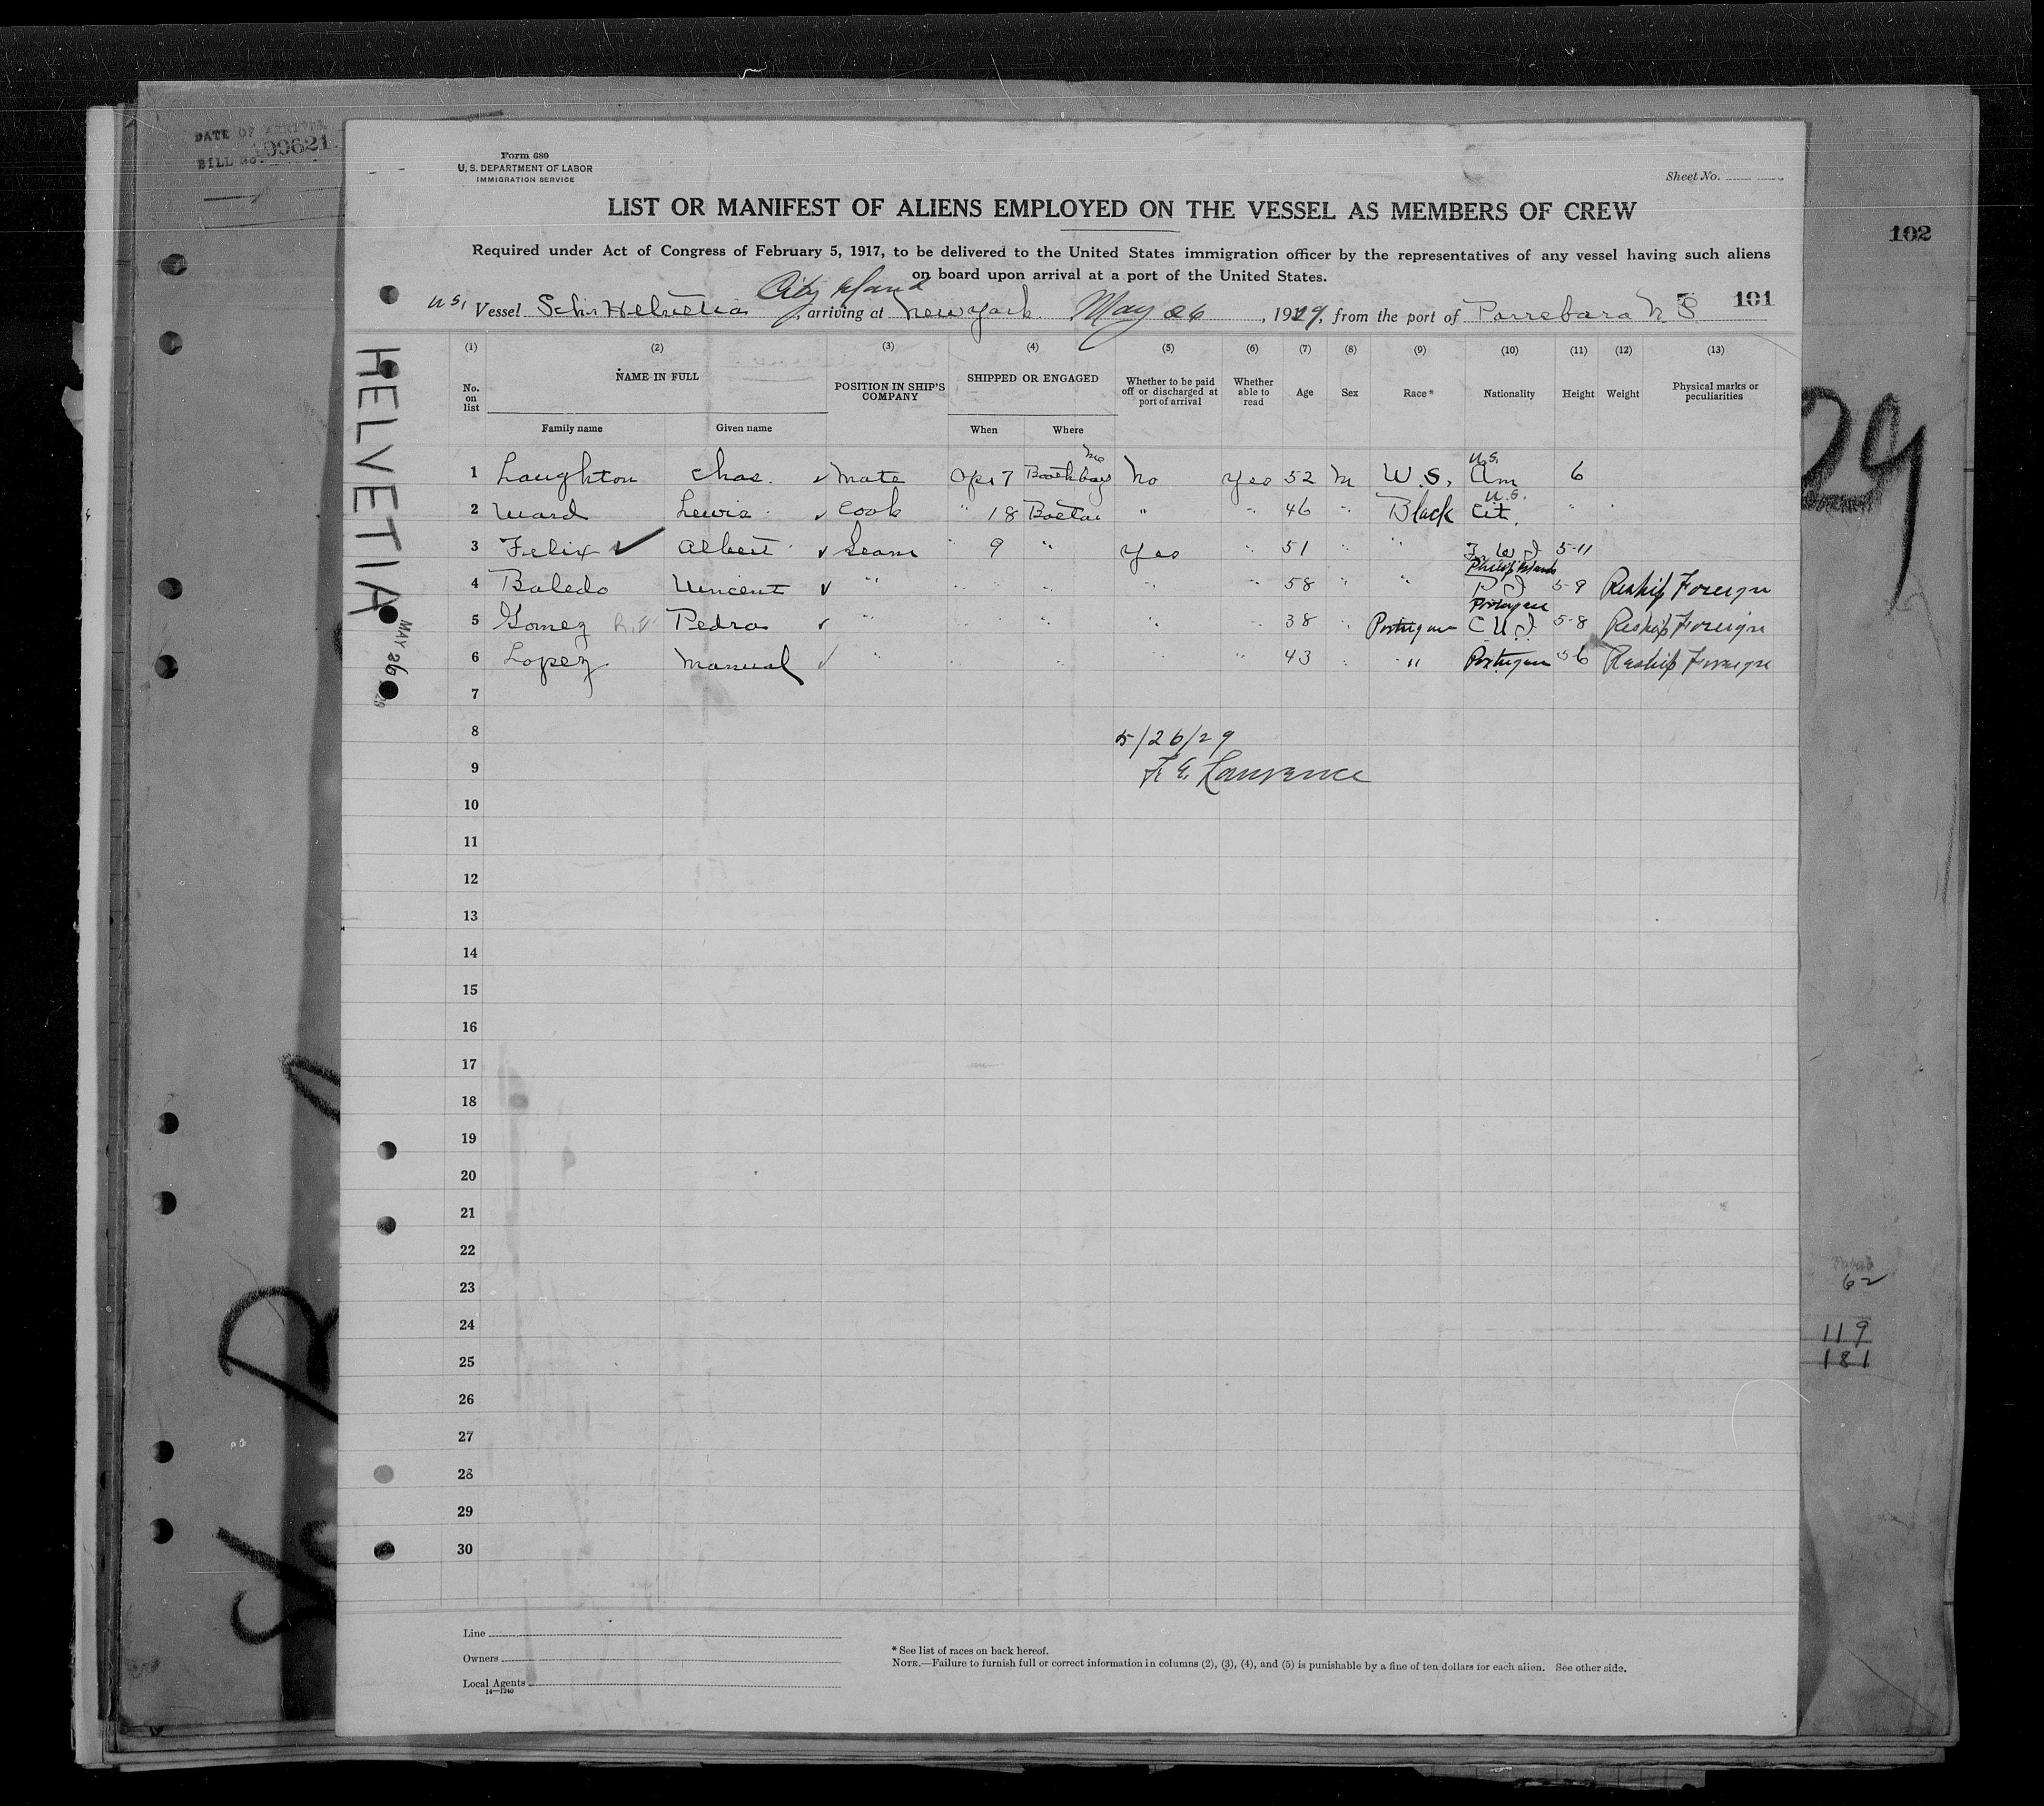 DATE OF ARRIVAL
BILL No. 99621
Form 680
U. S. DEPARTMENT OF LABOR
IMMIGRATION SERVICE
Sheet No.
LIST OR MANIFEST OF ALIENS EMPLOYED ON THE VESSEL AS MEMBERS OF CREW
102
Required under Act of Congress of February 5, 1917, to be delivered to the United States immigration officer by the representatives of any vessel having such aliens
on board upon arrival at a port of the United States.
City Island
101
U S, Vessel Schr Helvetia, arriving at New York. May 26, 1929, from the port of Parrsboro N S
HELVETIA
MAY 26 1929
29
(1) (2) (3) (4) (5) (6) (7) (8) (9) (10) (11) (12) (13)
No. on list NAME IN FULL POSITION IN SHIP'S COMPANY SHIPPED OR ENGAGED Whether to be paid off or discharged at port of arrival Whether able to read Age Sex Race* Nationality Height Weight Physical marks or peculiarities
Family name Given name When Where
1 Laughton Chas. ✓ Mate Apr 7 Boothbay Me No Yes 52 M W. S. U.S. Am 6
2 Ward Lewis ✓ Cook " 18 Boston " " 46 " Black U.S. Cit. "
3 Felix ✓ Albert ✓ Seam " 9 " Yes " 51 " " F. W. I 5-11
4 Boledo Vincent ✓ " " " " " " 58 " " Philip Islands P I 5-9 Reship Foreign
5 Gomez Pedro ✓ " " " " " " 38 " Portugese Portugese C V I. 5-8 Reship Foreign
6 Lopez Manual ✓ " " " " " " 43 " " Portugese 5 6 Reship Foreign
7
8 5/26/29
9 F. E. Lawrence
10
11
12
13
14
15
16
17
18
19
20
21
22
23
24
25
26
27
28
29
30
62
119
181
Line
Owners
Local Agents
14—1240
* See list of races on back hereof.
NOTE.—Failure to furnish full or correct information in columns (2), (3), (4), and (5) is punishable by a fine of ten dollars for each alien. See other side.